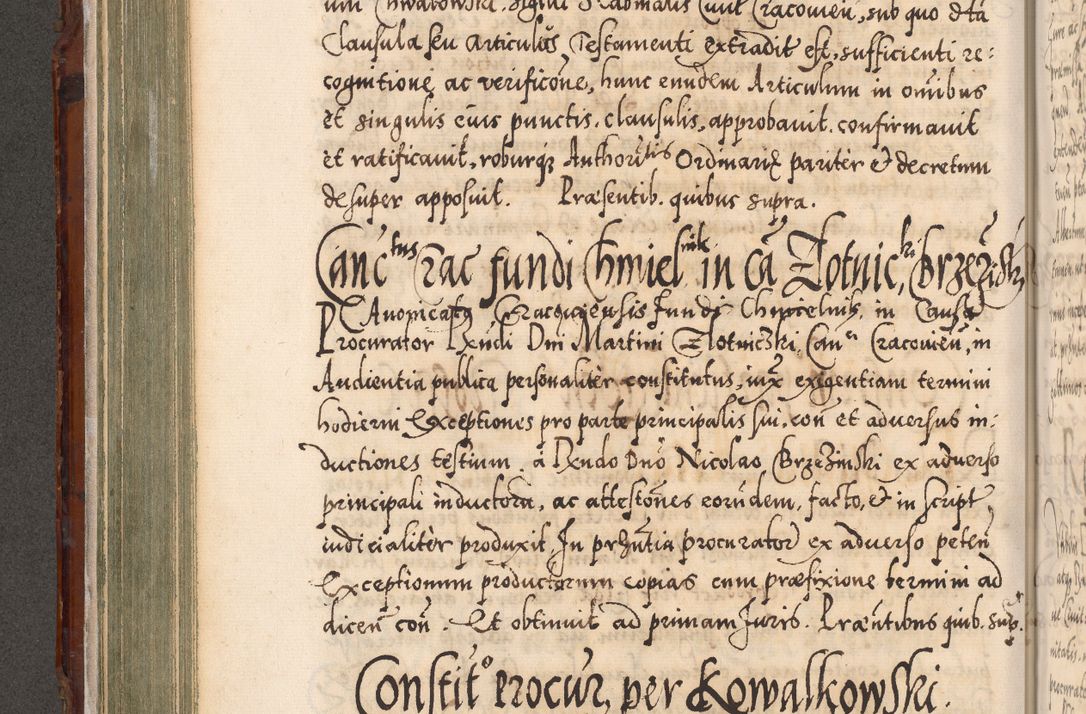 um Chwalkowski. Sigilli Scabinalis Civit Cracovien, sub quo dta
Clausula seu articulus Testamenti extradit est, sufficienti re:
cognitione ac verificone, hunc eundem Articulum in omibus
et singulis euis punctis. clausulis, approbavit. confirmavit
et ratificavit, roburqz Authoritis Ordinariæ pariter & decretum
desuper apposuit. Præsentib. quibus supra.
Canctus Crac fundi Chmielnik in Cā Zlotnicki, Brzezinski
Canonicatq Cracoviensis fundi Chmielnik, in Causa
Procurator Rxndi Dni Martini Zlotniczki, Can Cracovien, in
Audientia publica personaliter constitutus, iux exigentiam termini
hodierni Exceptiones pro parte principalis sui, con et adversus in:
ductiones testium, á Rxndo Dnō Nicolao Brzezinski ex adverso
principali inductora, ac attestones eorundem, facto, & in script
iudicialiter produxit In prasntia procurator ex adverso peten
Exceptionum productorum copias cum præfixione termini ad
dicen con. Et obtinuit ad primam Juris. Præentibus quib. sup.
Constit Procur, per Kowalkowski.